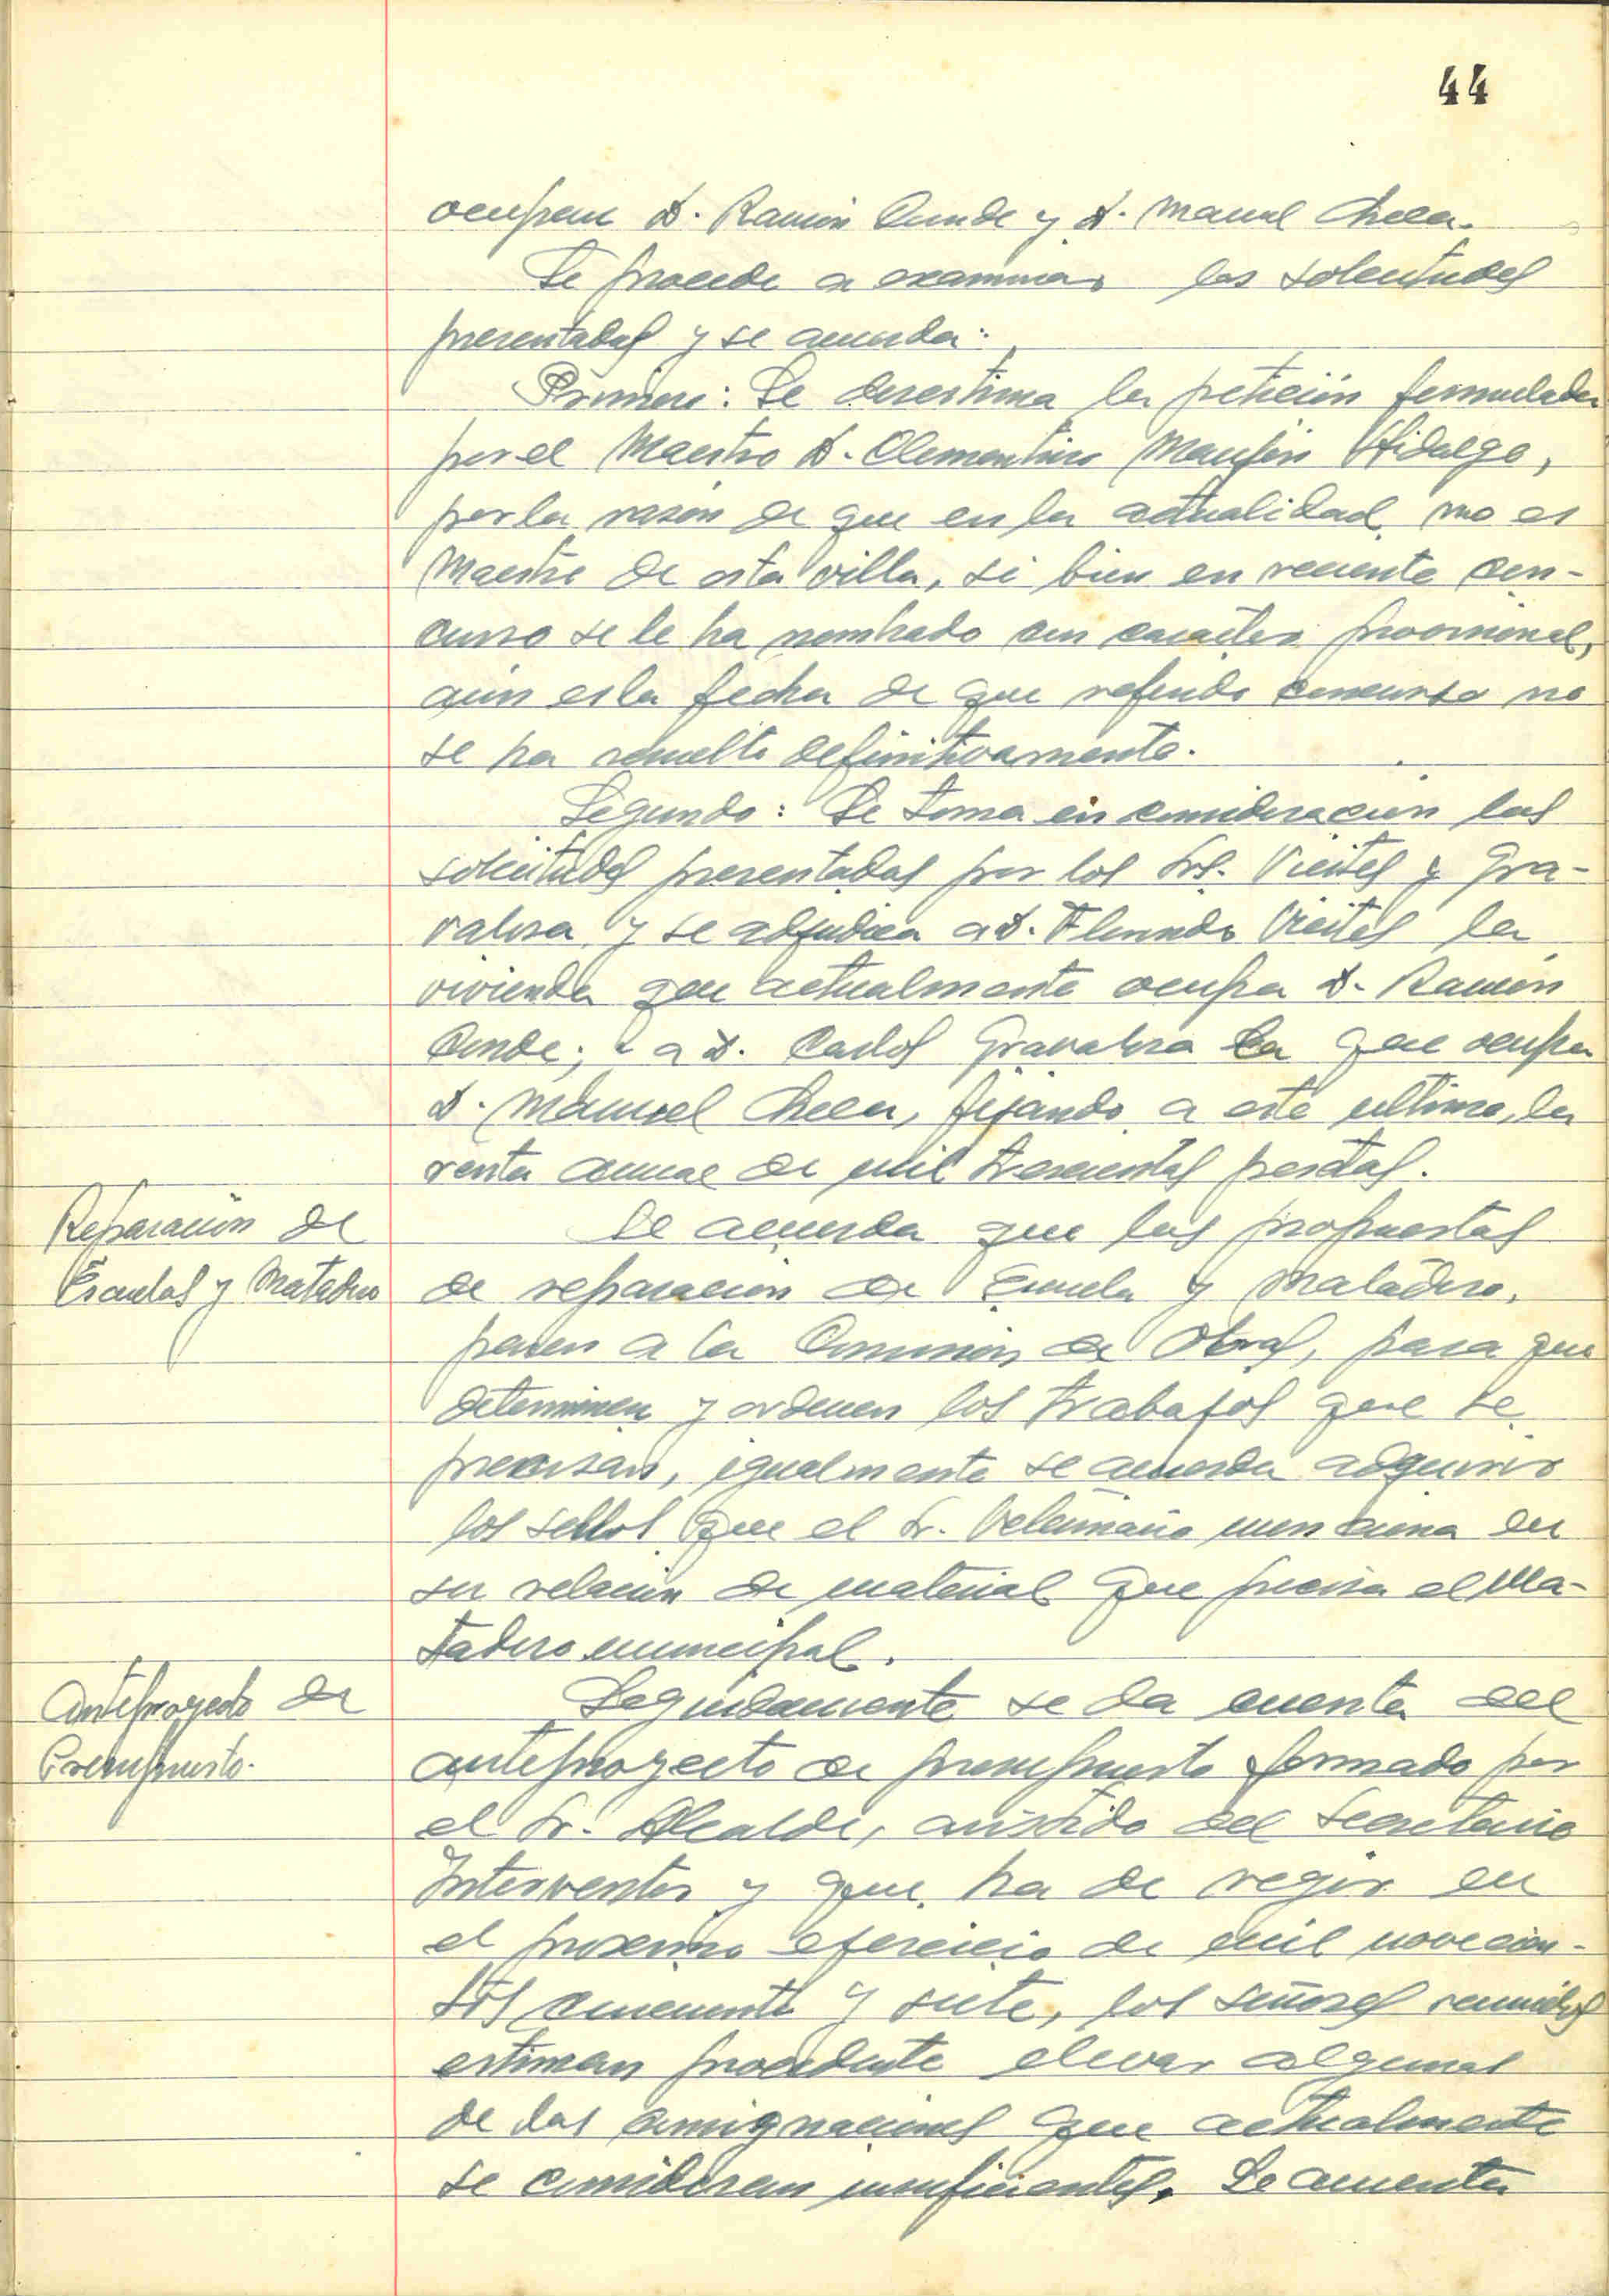 44
ocupan D. Ramón Conde y D. Manuel Checa.
Se procede a examinar las solicitudes
presentadas y se acuerda:
Primero: Se desestima la petición formulada
por el Maestro D. Clementino Hidalgo,
por la razón de que en la actualidad no es
Maestro de esta villa, si bien en reciente con-
curso se le ha nombrado con carácter provisional,
aún es la fecha de que referido concurso no
se ha resuelto definitivamente.
Segundo: Se toma en consideración las
solicitudes presentadas por los Srs. Vieites y Gra-
valosa y se adjudica a D. Vieites la
vivienda que actualmente ocupa D. Ramón
Conde; a D. Carlos Gravalosa la que ocupa
D. Manuel Checa, fijando a este ultimo, la
renta anual de mil trescientas pesetas.
Reparación de
Escuelas y Matadero
Se acuerda que las propuestas
de reparación de Escuela y Matadero,
pasen a la Comisión de Obras, para que
determinen y ordenen los trabajos que se
precisan, igualmente se acuerda adquirir
los sellos que el Sr. Veterinario menciona en
su relación de material que precisa el Ma-
tadero municipal.
Anteproyecto de
Presupuesto.
Seguidamente se da cuenta del
anteproyecto de presupuesto formado por
el Sr. Alcalde, asistido del Secretario
Interventor y que ha de regir en
el proximo ejercicio de mil novecien-
tos cincuenta y siete, los señores reunidos
estiman procedente elevar algunas
de las consignaciones que actualmente
se consideran insuficientes. Se aumenta